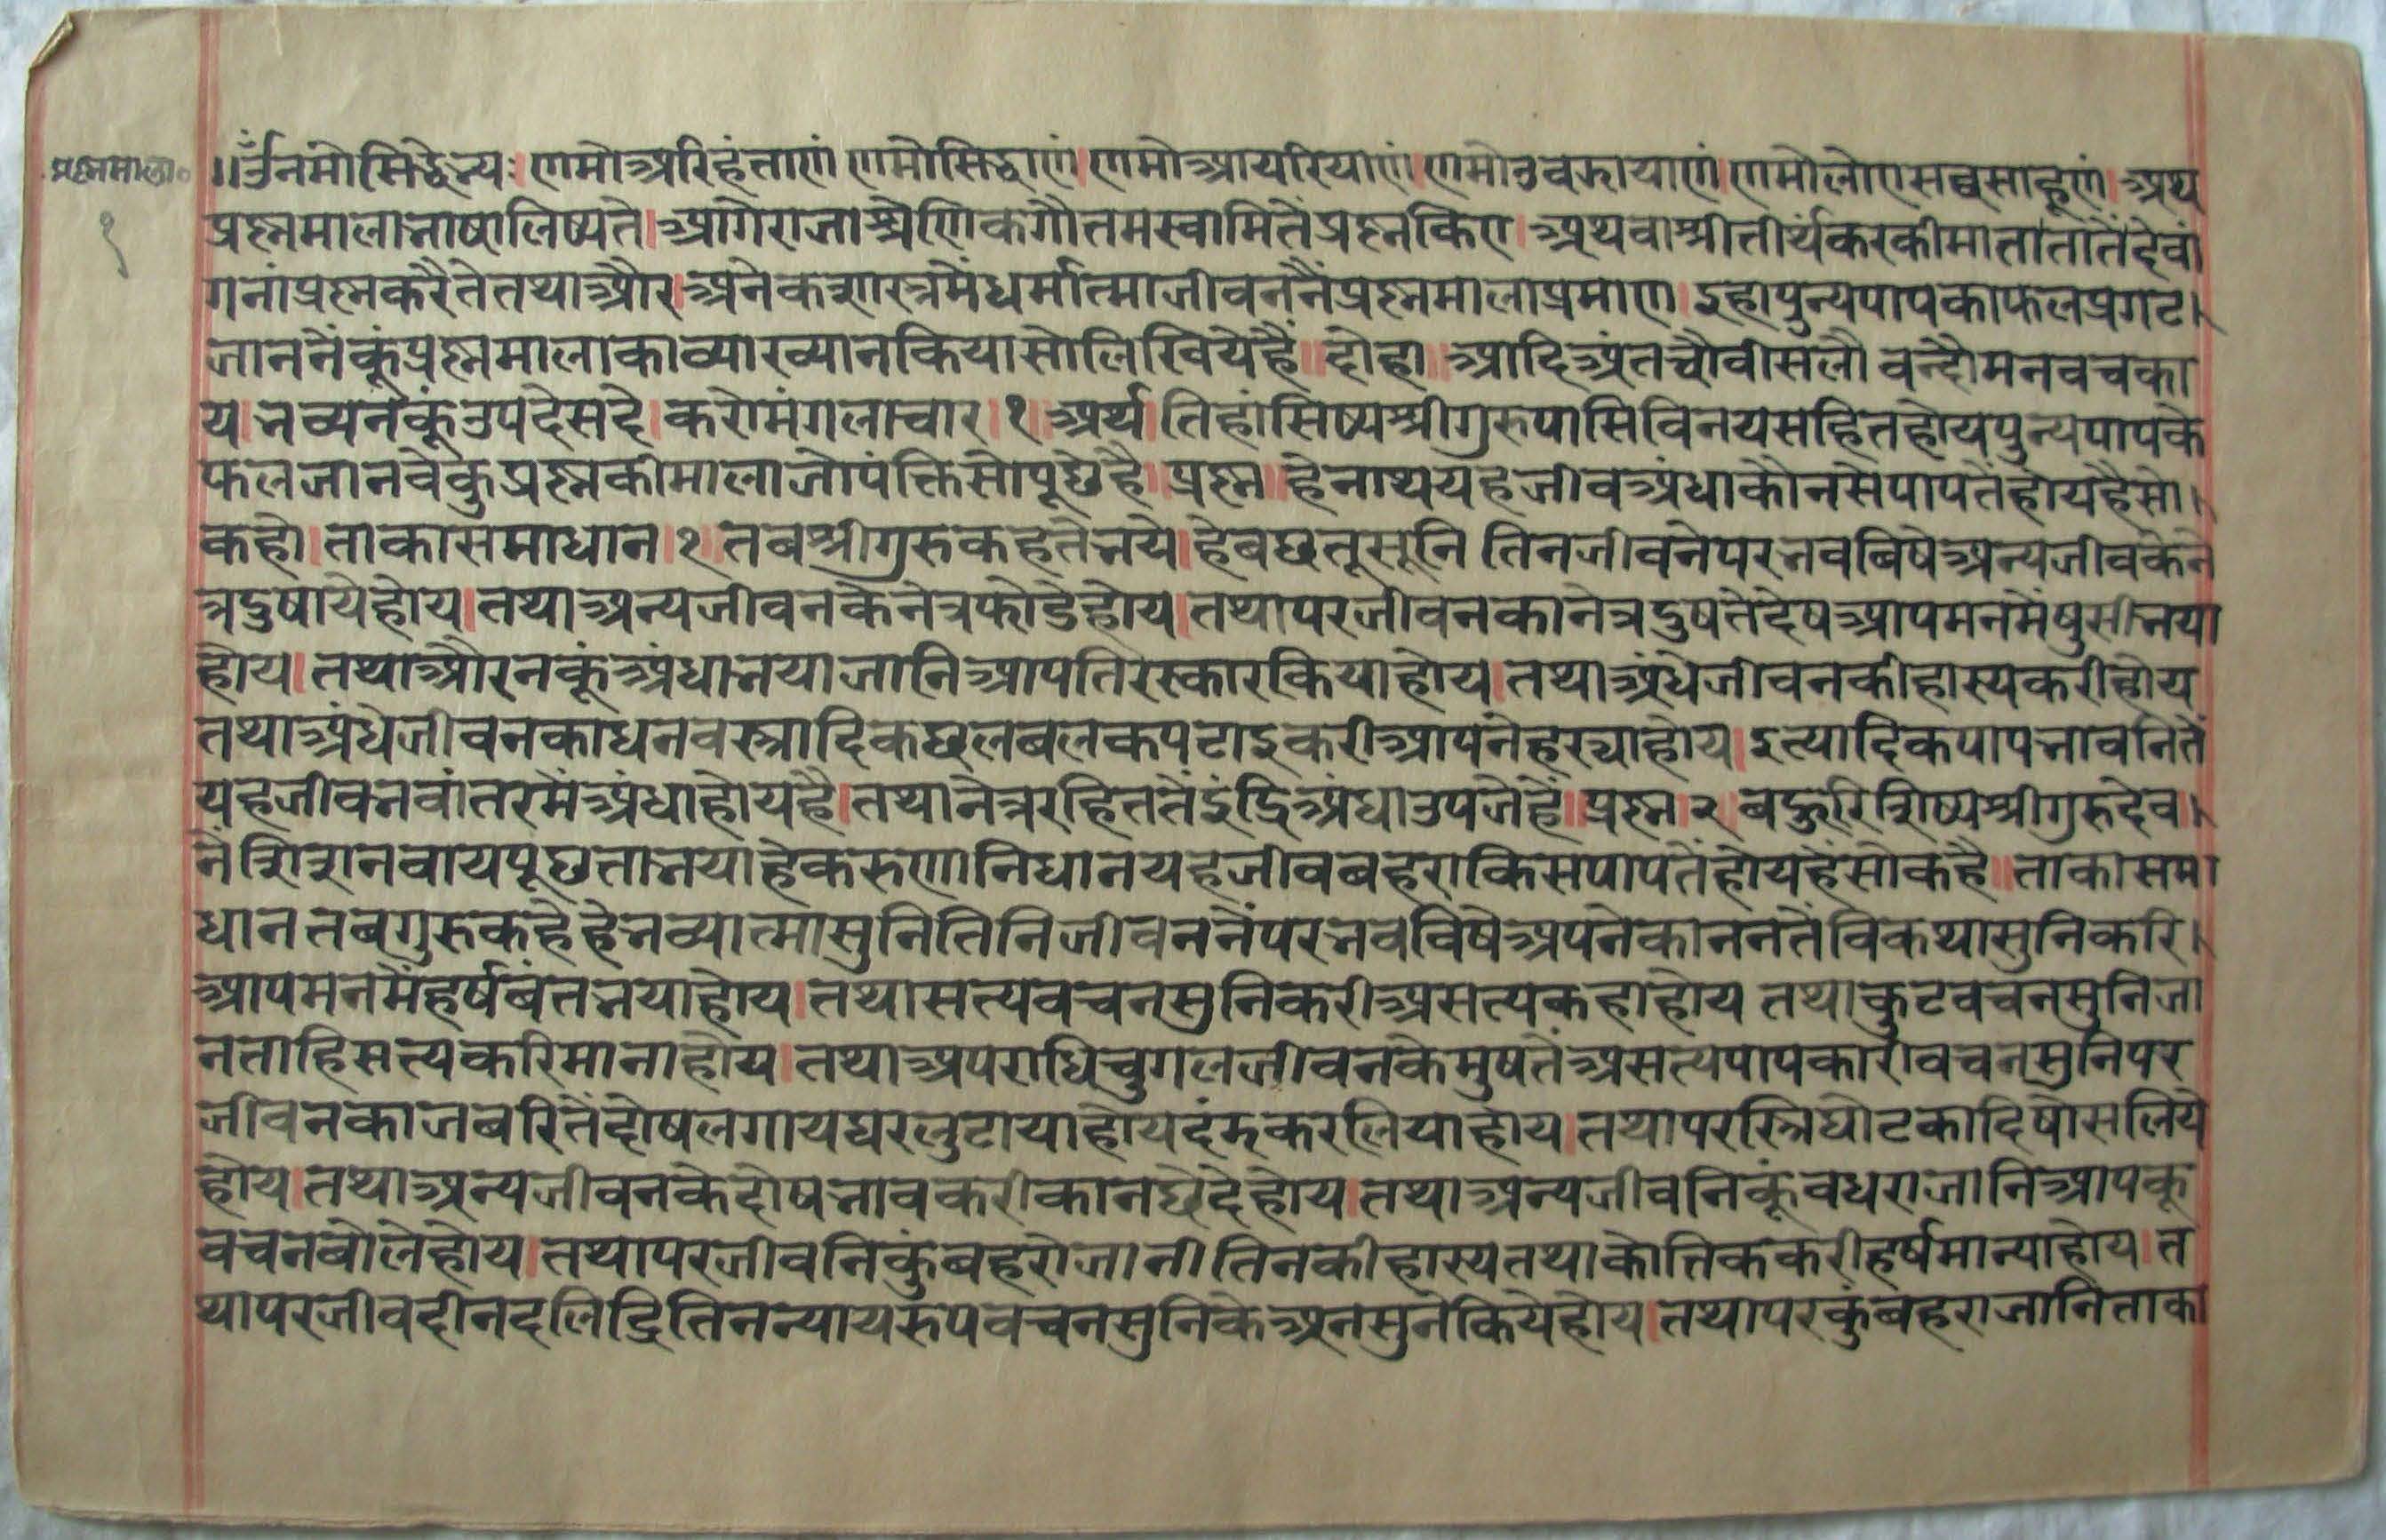 प्रश्नमाला०
१
॥ॐनमोसिद्धेभ्यः। णमोअरिहंताणं। णमोसिद्धाणं। णमोआयरियाणं। णमोउवझायाणं। णमोलोएसव्वसाहूणं। अथ
प्रश्नमालाभाषालिष्यते। आगेराजाश्रेणिकगौतमस्वामितैंप्रश्नकिए। अथवाश्रीतीर्थंकरकीमातातातैंदेवां
गनांप्रश्नकरैतेतथाऔर। अनेकशास्त्रमैंधर्मात्माजीवननैंप्रश्नमालाप्रमाण। इहापुन्यपापकाफलप्रगट।
जाननैंकूंप्रश्नमालाकाव्याख्यानकियासोलिखियेहैं॥ दोहा॥ आदिअंतचौवीसलौ वन्दौमनवचका
य। भव्यनकूंउपदेसदे। करोमंगलाचार। १। अर्थ। तिहांसिष्यश्रीगुरुपासिविनयसहितहोयपुन्यपापके
फलजानवेकुप्रश्नकीमालाजोपंक्तिसोपूछेहै॥ प्रश्न॥ हेनाथयहजीवअंधाकौनसेपापतैंहोयहैसो।
कहो। ताकासमाधान। १। तबश्रीगुरुकहतेभये। हेबछतूसुनि तिनजीवनेपरभवबिषेअन्यजीवकेने
त्रदुषायेहोय। तथाअन्यजीवनकेनेत्रफोडेहोय। तथापरजीवनकानेत्रदुषतेदेषआपमनमैंषुसीभया
होय। तथाऔरनकूंअंधाभयाजानिआपतिरस्कारकियाहोय। तथाअंधेजीवनकीहास्यकरीहोय
तथाअंधेजीवनकाधनवस्त्रादिकछलबलकपटाइकरीआपनेहस्याहोय। इत्यादिकपापभावनितें
यहजीवभवांतरमेंअंधाहोयहै। तथानेत्ररहिततेंइंद्रिअंधाउपजैहैं॥ प्रश्न॥ २। बहुरिशिष्यश्रीगुरुदेव।
नैंशिशनवायपूछताभयाहेकरुणानिधानयहजीवबहराकिसपापतेंहोयहैसोकहै॥ ताकासमा
धान तबगुरुकहैहेभव्यात्मासुनितिनिजीवननैंपरभवविषेअपनेकाननतेंविकथासुनिकरि।
आपमनमेंहर्षबंतभयाहोय। तथासत्यवचनसुनिकरीअसत्यकहाहोय तथाकुटवचनसुनिजा
नताहिसत्यकरिमानाहोय। तथाअपराधिचुगलजीवनकेमुषतेंअसत्यपापकारीवचनसुनिपर
जीवनकाजबरितैंदोषलगायघरलुटायाहोयदंडकरलियाहोय। तथापरस्त्रिघोटकादिषोसलिये
होय। तथाअन्यजीवनकेदोषभावकरीकानछेदेहोय। तथाअन्यजीवनिकूंवधराजानिआपकू
वचनबोलेहोय। तथापरजीवनिकुंबहरोजानी तिनकीहास्यतथाकोतिककरीहर्षमान्याहोय। त
थापरजीवदीनदलिद्रितिनन्यायरुपवचनसुनिकेअनसुनेकियेहोय। तथापरकुंबहराजानिताका